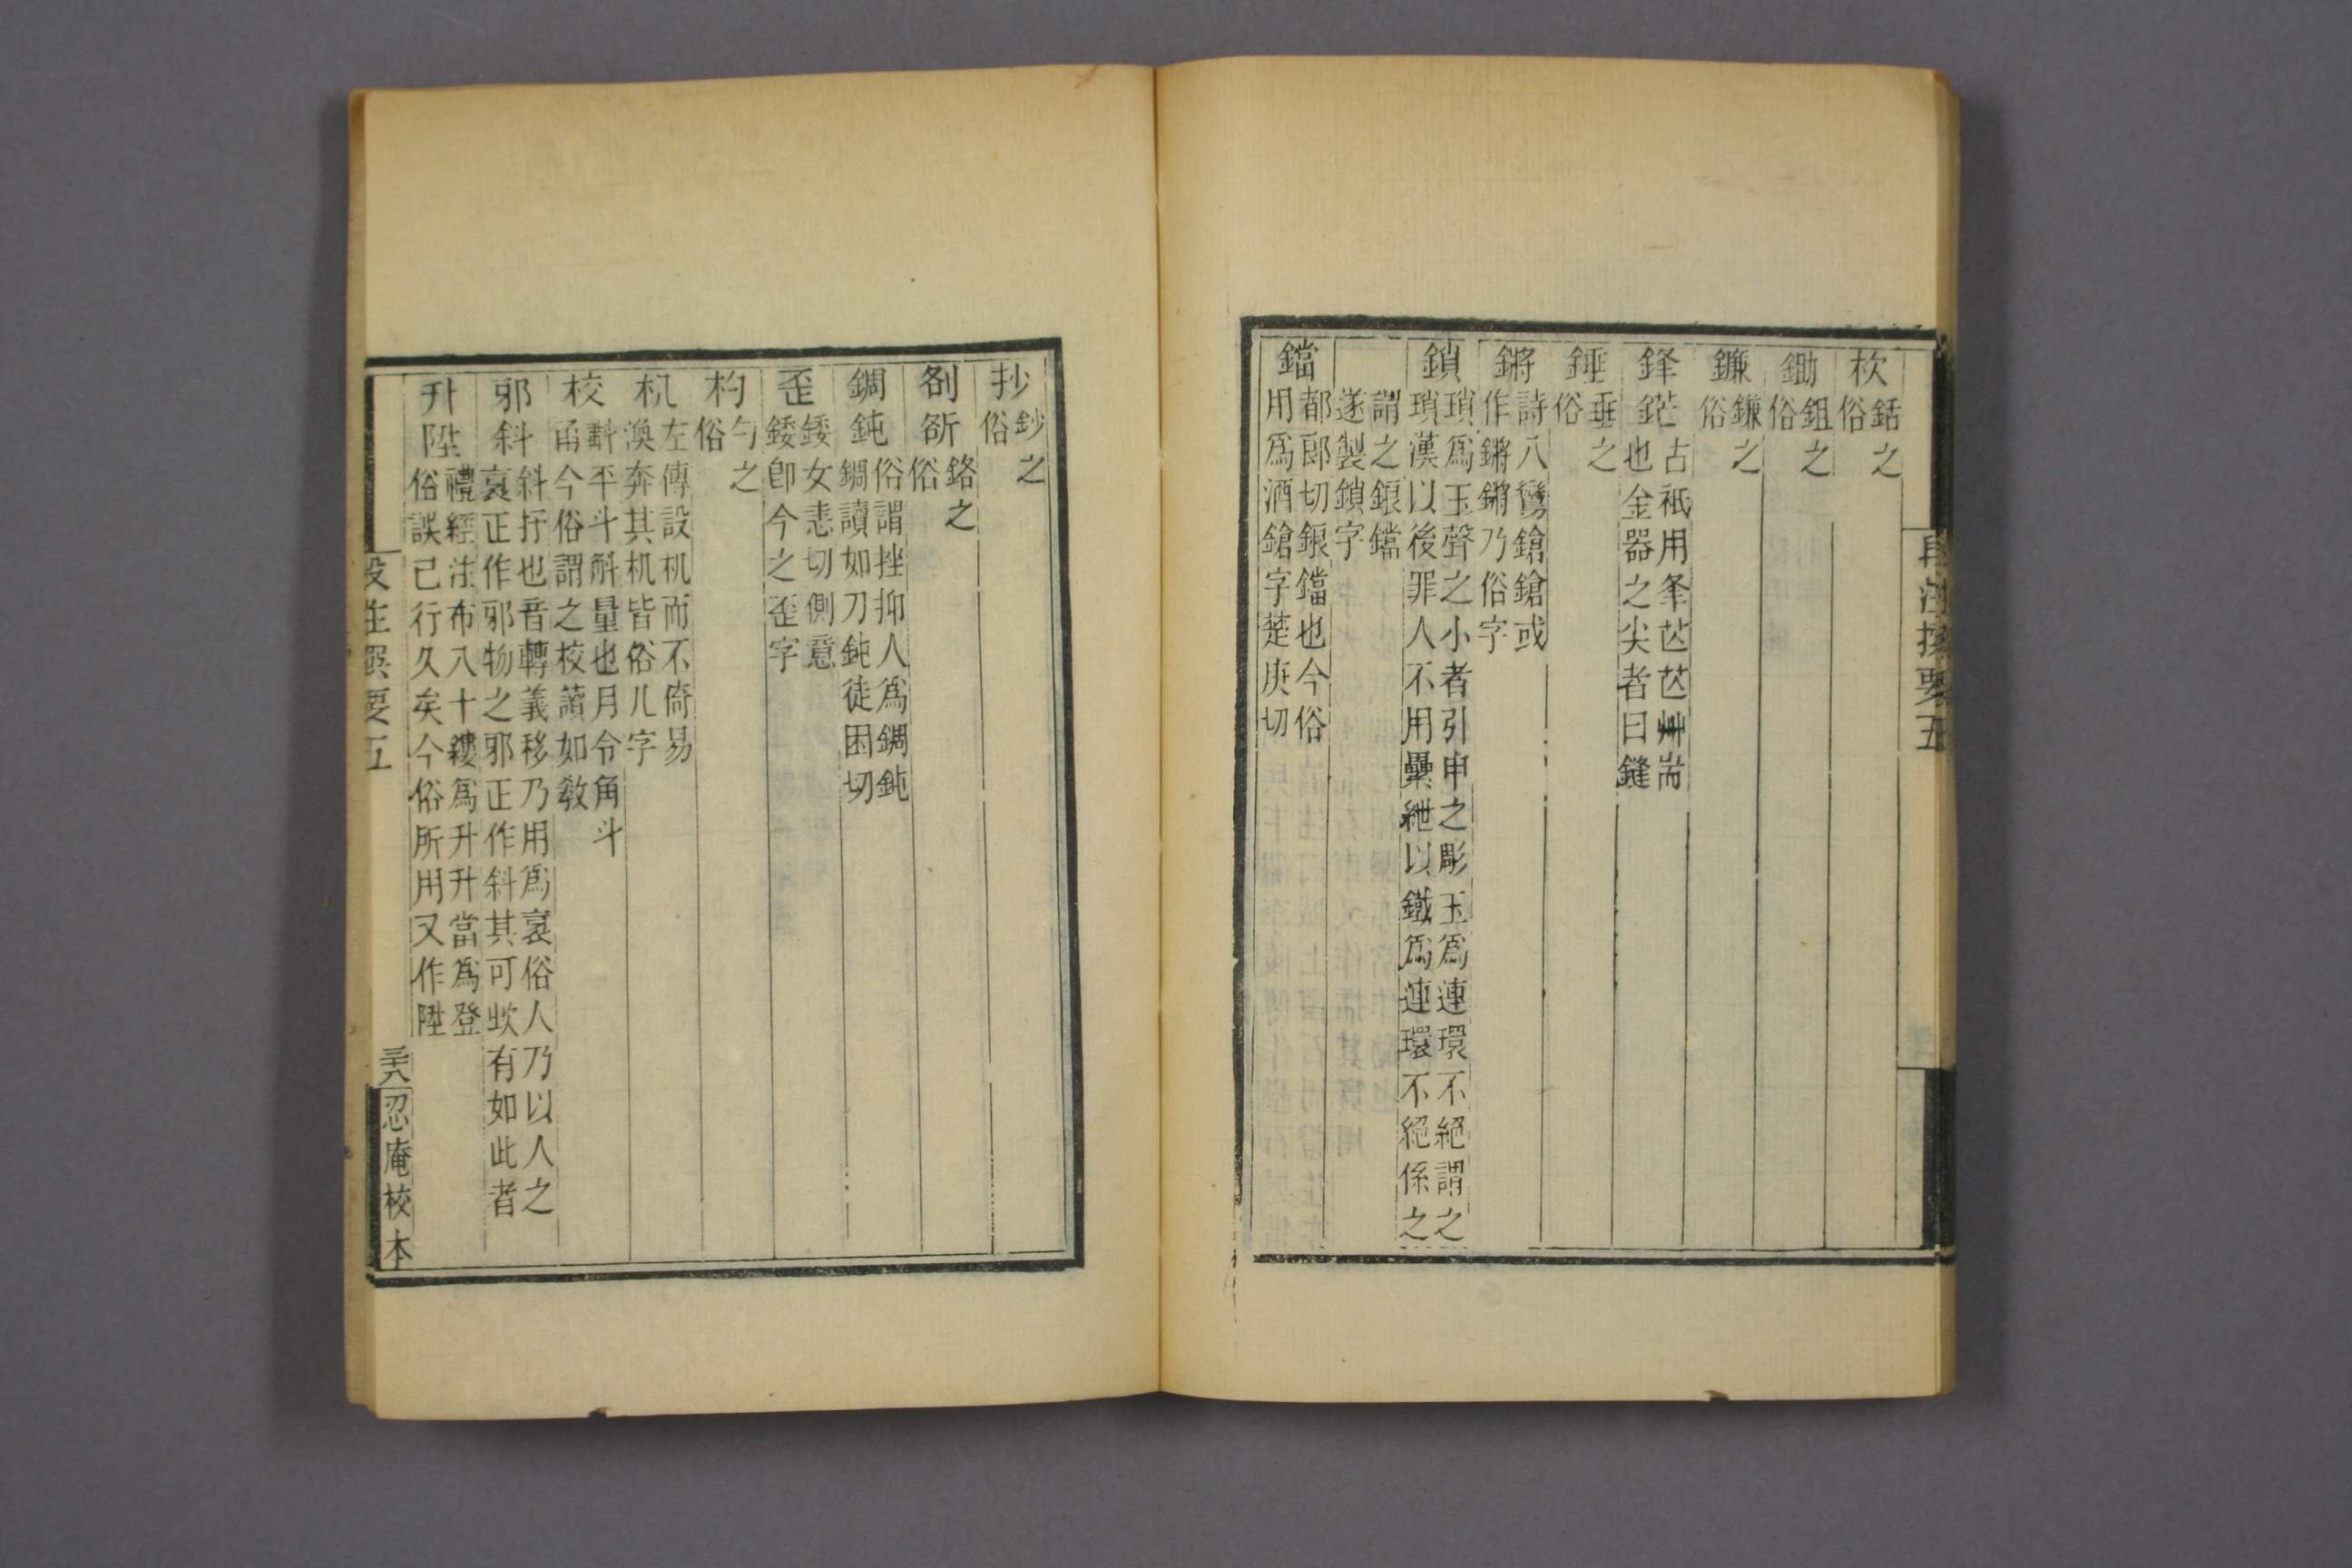 段注撰要五
杴銛之俗
鋤鉏之俗
鐮鎌之俗
鋒鋩古衹用夆𦬆𦬆艸耑也金器之尖者曰鏠
錘垂之俗
鏘詩八鸞鎗鎗或作鏘鏘乃俗字
鎖瑣爲玉聲之小者引申之彫玉爲連環不絕謂之瑣漢以後罪人不用纍紲以鐵爲連環不絕係之
謂之鋃鐺遂製鎖字
鐺都郎切鋃鐺也今俗用爲酒鎗字楚庚切
抄鈔之俗
剖㓣鉻之俗
錭鈍俗謂挫抑人爲錭鈍錭讀如刀鈍徒困切
歪䤚䤚女恚切側意䤚卽今之歪字
杓勺之俗
机左傳設机而不倚易渙奔其机皆俗几字
校㪺平斗斛量也月令角斗甬今俗謂之校讀如敎
邪斜斜抒也音轉義移乃用爲衺俗人乃以人之衺正作邪物之邪正作斜其可㰞有如此者
升陞禮經注布八十縷爲升升當爲登俗誤已行久矣今俗所用又作陞
段注撰要五
忍庵校本